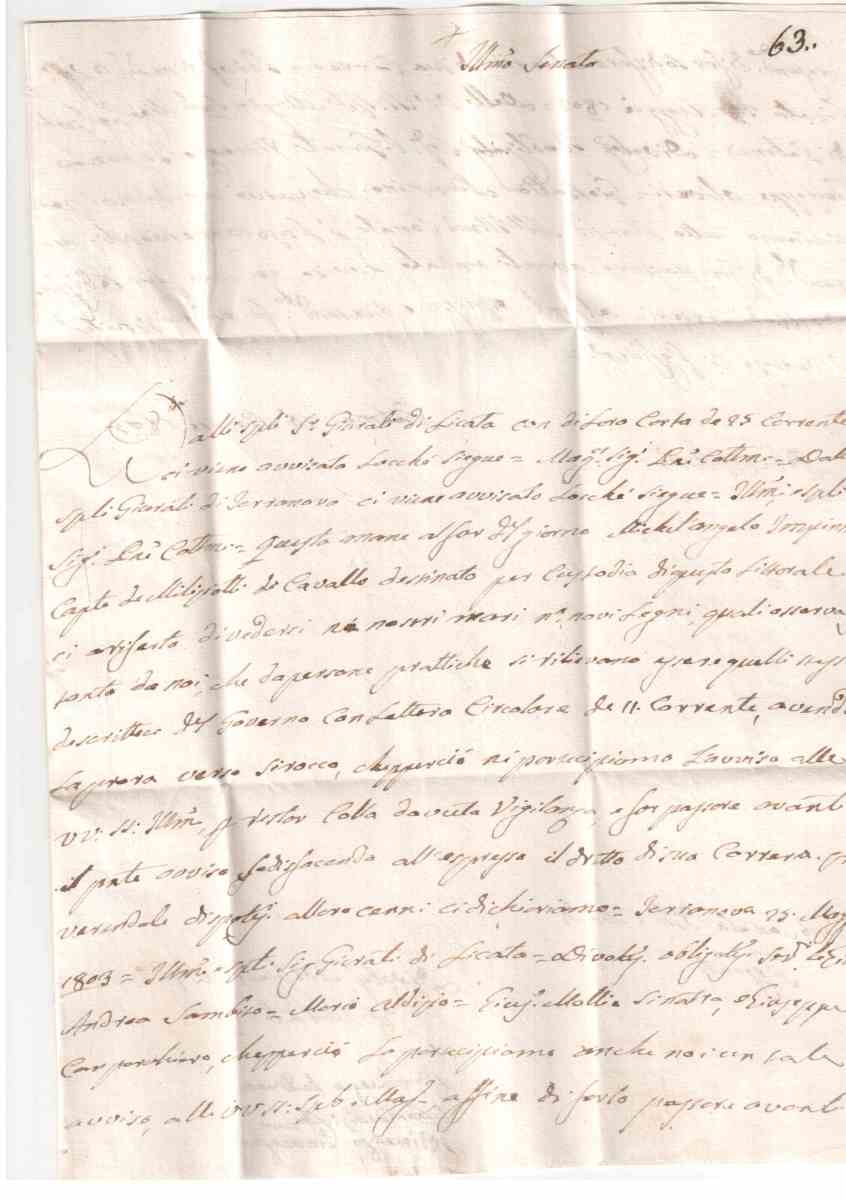 63..
Illmõ Senato
Dalli Spli Sri Giurati di Licata con di loro Carta de 25 Corrente
ci viene avvisato Locché Siegue = Mag.ci Sig.ri Pni Colmi = Dalli
Spli Giurati di Terranova ci viene avvisato Locché siegue = Illmi, e Spli
Sig.ri Pni Colmi = Questa mane al far del giorno Michel'angelo
Capto de Miliziotti de Cavallo destinato per Custodia di questo Littorale
ci à riferito di vedersi ne nostri mari n.o novi Legni, quali osserva
tosi da noi, che da persone prattiche si rilevano essere quelli stessi
descritteci del Governo con Lettera Circolare de 11. Corrente, avendo
La prora verso Sirocco, chepperciò ni partecipiamo L'avviso alle
VV: SS: Illme, p restar Colla dovuta Vigilanza, e far passare avanti
il pnte avviso sodisfacendo all'espresso il dritto di sua Carrera.
alloro cenni ci dichiariamo = Terranova 25. Maggio
1803 = Illmi e Spli Sig.ri Giurati di Licata = Divotmi, obligatmi Servri
Andrea = Mario Aldisio = Mattia Sinatra, e Giuseppe
Carpenchiero, chepperciò La partecipiamo anche noi un tale
avviso, alle VV SS: Spli e Mag.ci affine di farlo passare avanti